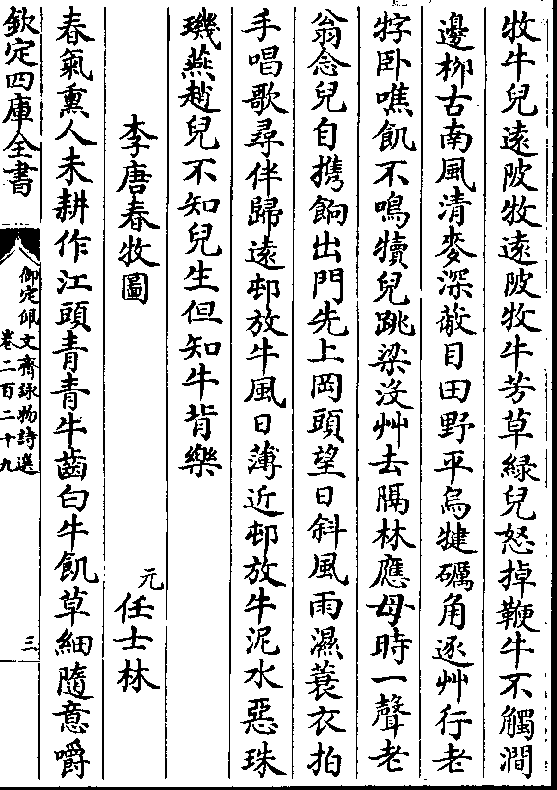 牧牛兒遠陂牧遠陂牧牛芳草緑兒怒掉鞭牛不觸澗
邊柳古南風清麥深蔽目田野平烏犍礪角逐艸行老
牸卧噍飢不鳴犢兒跳梁没艸去隔林應母時一聲老
翁念兒自携餉出門先上岡頭望日斜風雨濕蓑衣拍
手唱歌尋伴歸遠邨放牛風日薄近邨放牛泥水惡珠
璣燕趙兒不知兒生但知牛背樂
李唐春牧圖
元 任士林
春氣熏人未耕作江頭青青牛齒白牛飢草細隨意嚼
欽定四庫全書
御定佩文齋詠物詩選
卷二百二十九
三